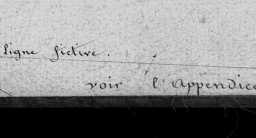 ligne fictive.
voir l'appendice